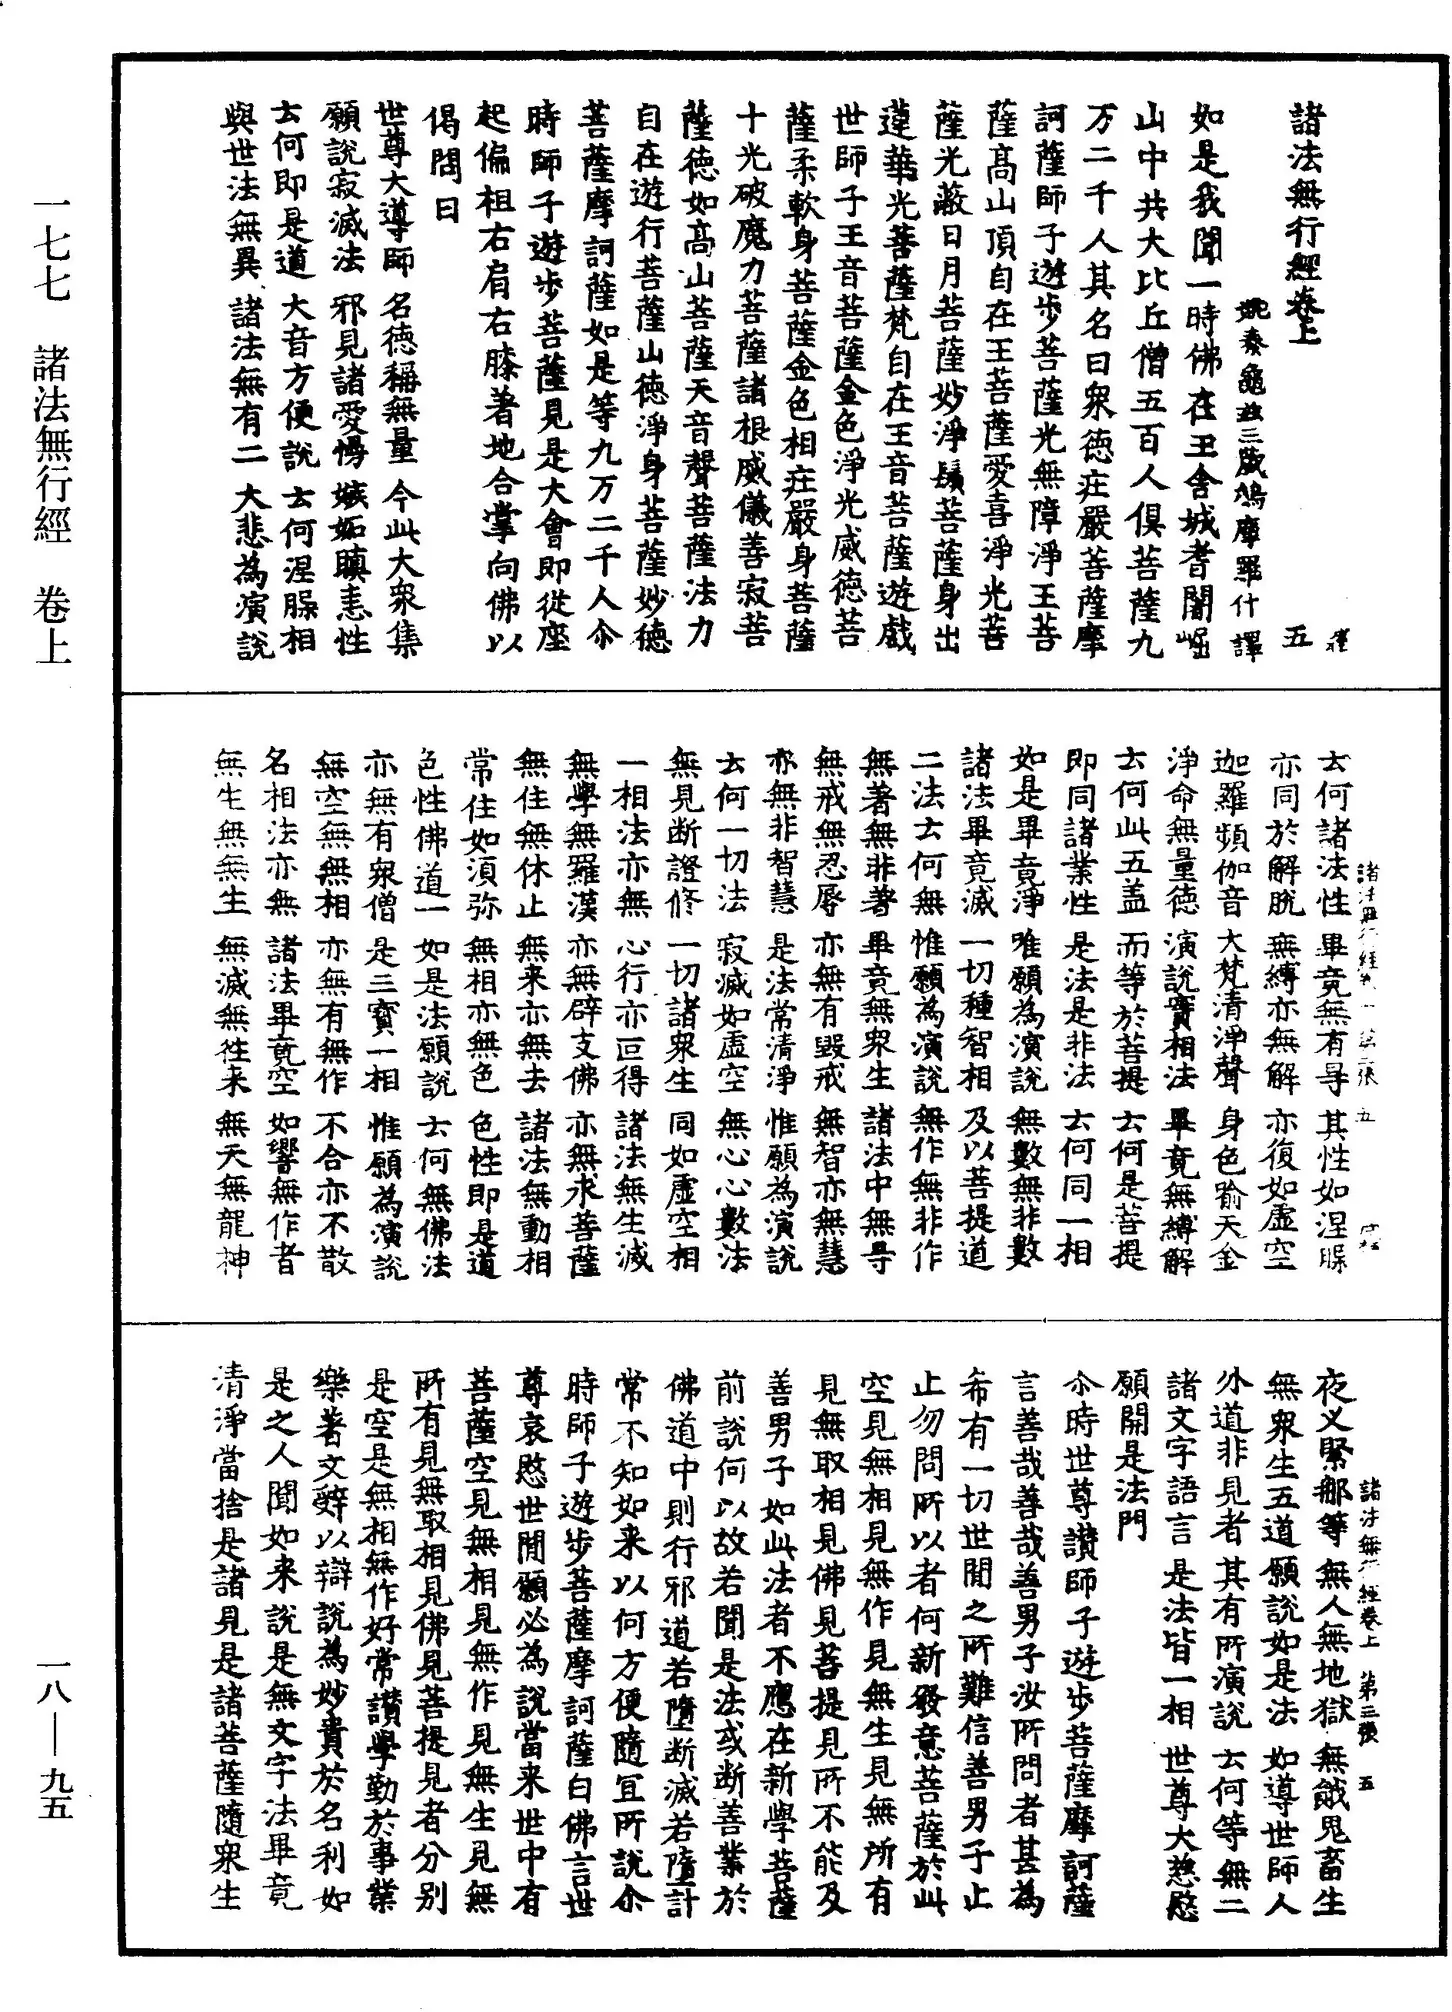 諸法無行經卷上　五
姚秦龜玆三藏鳩摩羅什譯
如是我聞一時佛在王舍城耆闍崛
山中共大比丘僧五百人俱菩薩九
万二千人其名曰衆德莊嚴菩薩摩
訶薩師子遊步菩薩光無障淨王菩
薩高山頂自在王菩薩愛喜淨光菩
薩光蔽日月菩薩妙淨鬚菩薩身出
蓮華光菩薩梵自在王音菩薩遊戲
世師子王音菩薩金色淨光威德菩
薩柔軟身菩薩金色相莊嚴身菩薩
十光破魔力菩薩諸根威儀善寂菩
薩德如高山菩薩天音聲菩薩法力
自在遊行菩薩山德淨身菩薩妙德
菩薩摩訶薩如是等九万二千人尒
時師子遊步菩薩見是大會即從座
起偏袒右肩右膝著地合掌向佛以
偈問曰
世尊大導師　名德稱無量　今此大衆集
願說寂滅法　邪見諸愛慢　嫉妬瞋恚性
云何即是道　大音方便說　云何涅槃相
與世法無異　諸法無有二　大悲為演說
云何諸法性　畢竟無有㝵　其性如涅槃
亦同於解脫　無縛亦無解　亦復如虛空
迦羅頻伽音　大梵清淨聲　身色踰天金
淨命無量德　演說實相法　畢竟無縛解
云何此五盖　而等於菩提　云何是菩提
即同諸業性　是法是非法　云何同一相
如是畢竟淨　唯願為演說　無數無非數
諸法畢竟滅　一切種智相　及以菩提道
二法云何無　惟願為演說　無作無非作
無著無非著　畢竟無衆生　諸法中無㝵
無戒無忍辱　亦無有毀戒　無智亦無慧
亦無非智慧　是法常清淨　惟願為演說
云何一切法　寂滅如虛空　無心心數法
無見斷證修　一切諸衆生　同如虛空相
一相法亦無　心行亦叵得　諸法無生滅
無學無羅漢　亦無辟支佛　亦無求菩薩
無住無休止　無來亦無去　諸法無動相
常住如湏弥　無相亦無色　色性即是道
色性佛道一　如是法願說　云何無佛法
亦無有衆僧　是三寳一相　惟願為演說
無空無無相　亦無有無作　不合亦不散
名相法亦無　諸法畢竟空　如響無作者
無生無無生　無滅無往來　無天無龍神
諸法無行經卷上　第三張　五
夜叉緊那等　無人無地獄　無餓鬼畜生
無衆生五道　願說如是法　如導世師人
外道非見者　其有所演說　云何等無二
諸文字語言　是法皆一相　世尊大慈愍
願開是法門
尒時世尊讃師子遊步菩薩摩訶薩
言善哉善哉善男子汝所問者甚為
希有一切世閒之所難信善男子止
止勿問所以者何新發意菩薩於此
空見無相見無作見無生見無所有
見無取相見佛見菩提見所不能及
善男子如此法者不應在新學菩薩
前說何以故若聞是法或斷善業於
佛道中則行邪道若墮斷滅若墮計
常不知如來以何方便隨冝所說尒
時師子遊步菩薩摩訶薩白佛言世
尊哀愍世閒願必為說當來世中有
菩薩空見無相見無作見無生見無
所有見無取相見佛見菩提見者分別
是空是無相無作好常讃學勤於事業
樂著文辭以辯說為妙貴於名利如
是之人聞如來說是無文字法畢竟
清淨當捨是諸見是諸菩薩隨衆生
一七七　諸法無行經　卷上
一八—九五